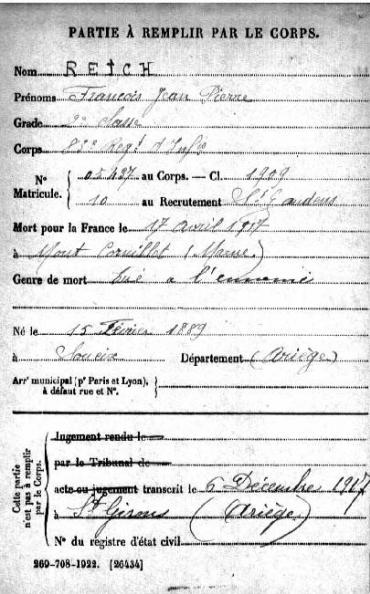 PARTIE À REMPLIR PAR LE CORPS.
Nom REICH
Prénoms François Jean Pierre
Grade 2e classe
Corps 83e Régt d'Infie
Nº Matricule. 05427 au Corps. — Cl. 1909
10 au Recrutement St Gaudens
Mort pour la France le 17 avril 1917
à Mont Cornillet (Marne)
Genre de mort Tué à l'ennemi
Né le 15 Février 1889
à Soueix Département (Ariège)
Arrt municipal (pr Paris et Lyon),
à défaut rue et Nº.
Cette partie n'est pas à remplir par le Corps.
Jugement rendu le
par le Tribunal de
acte ou jugement transcrit le 5 Décembre 1917
à St Girons (Ariège)
Nº du registre d'état civil
269-708-1922. [26434]